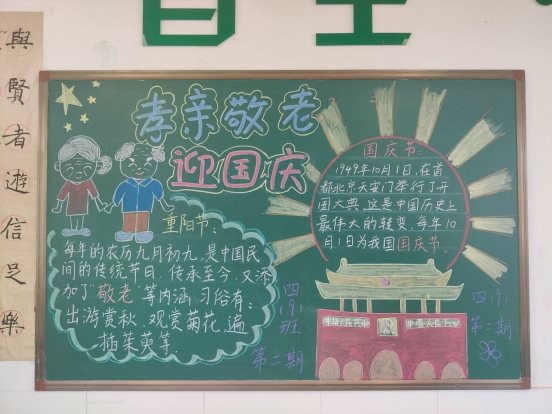 與賢者遊信足樂
孝亲敬老
迎国庆
重阳节:
每年的农历九月初九,是中国民
间的传统节日,传承至今,又添
加了"敬老"等内涵,习俗有:
出游赏秋、观赏菊花、遍
插茱萸等
四(9)
班
第二期
国庆节:
1949年10月1日,在首
都北京天安门举行了开
国大典,这是中国历史上
最伟大的转变,每年10
月1日为我国国庆节。
四(9)
第二期